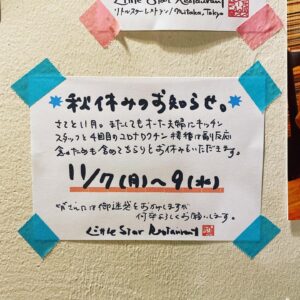 Little Star Restaurant
リトルスターレストラン/Mitaka, Tokyo
秋休みのお知らせ。
さて11月。またしてもオーナー夫婦にキッチン
スタッフと4回目のコロナワクチン接種は副反応
含めちらりとお休みいただきます。
11/7(月)〜9(水)
みなさんには御迷惑をおかけしますが
何卒よろしくお願いします。
Little Star Restaurant